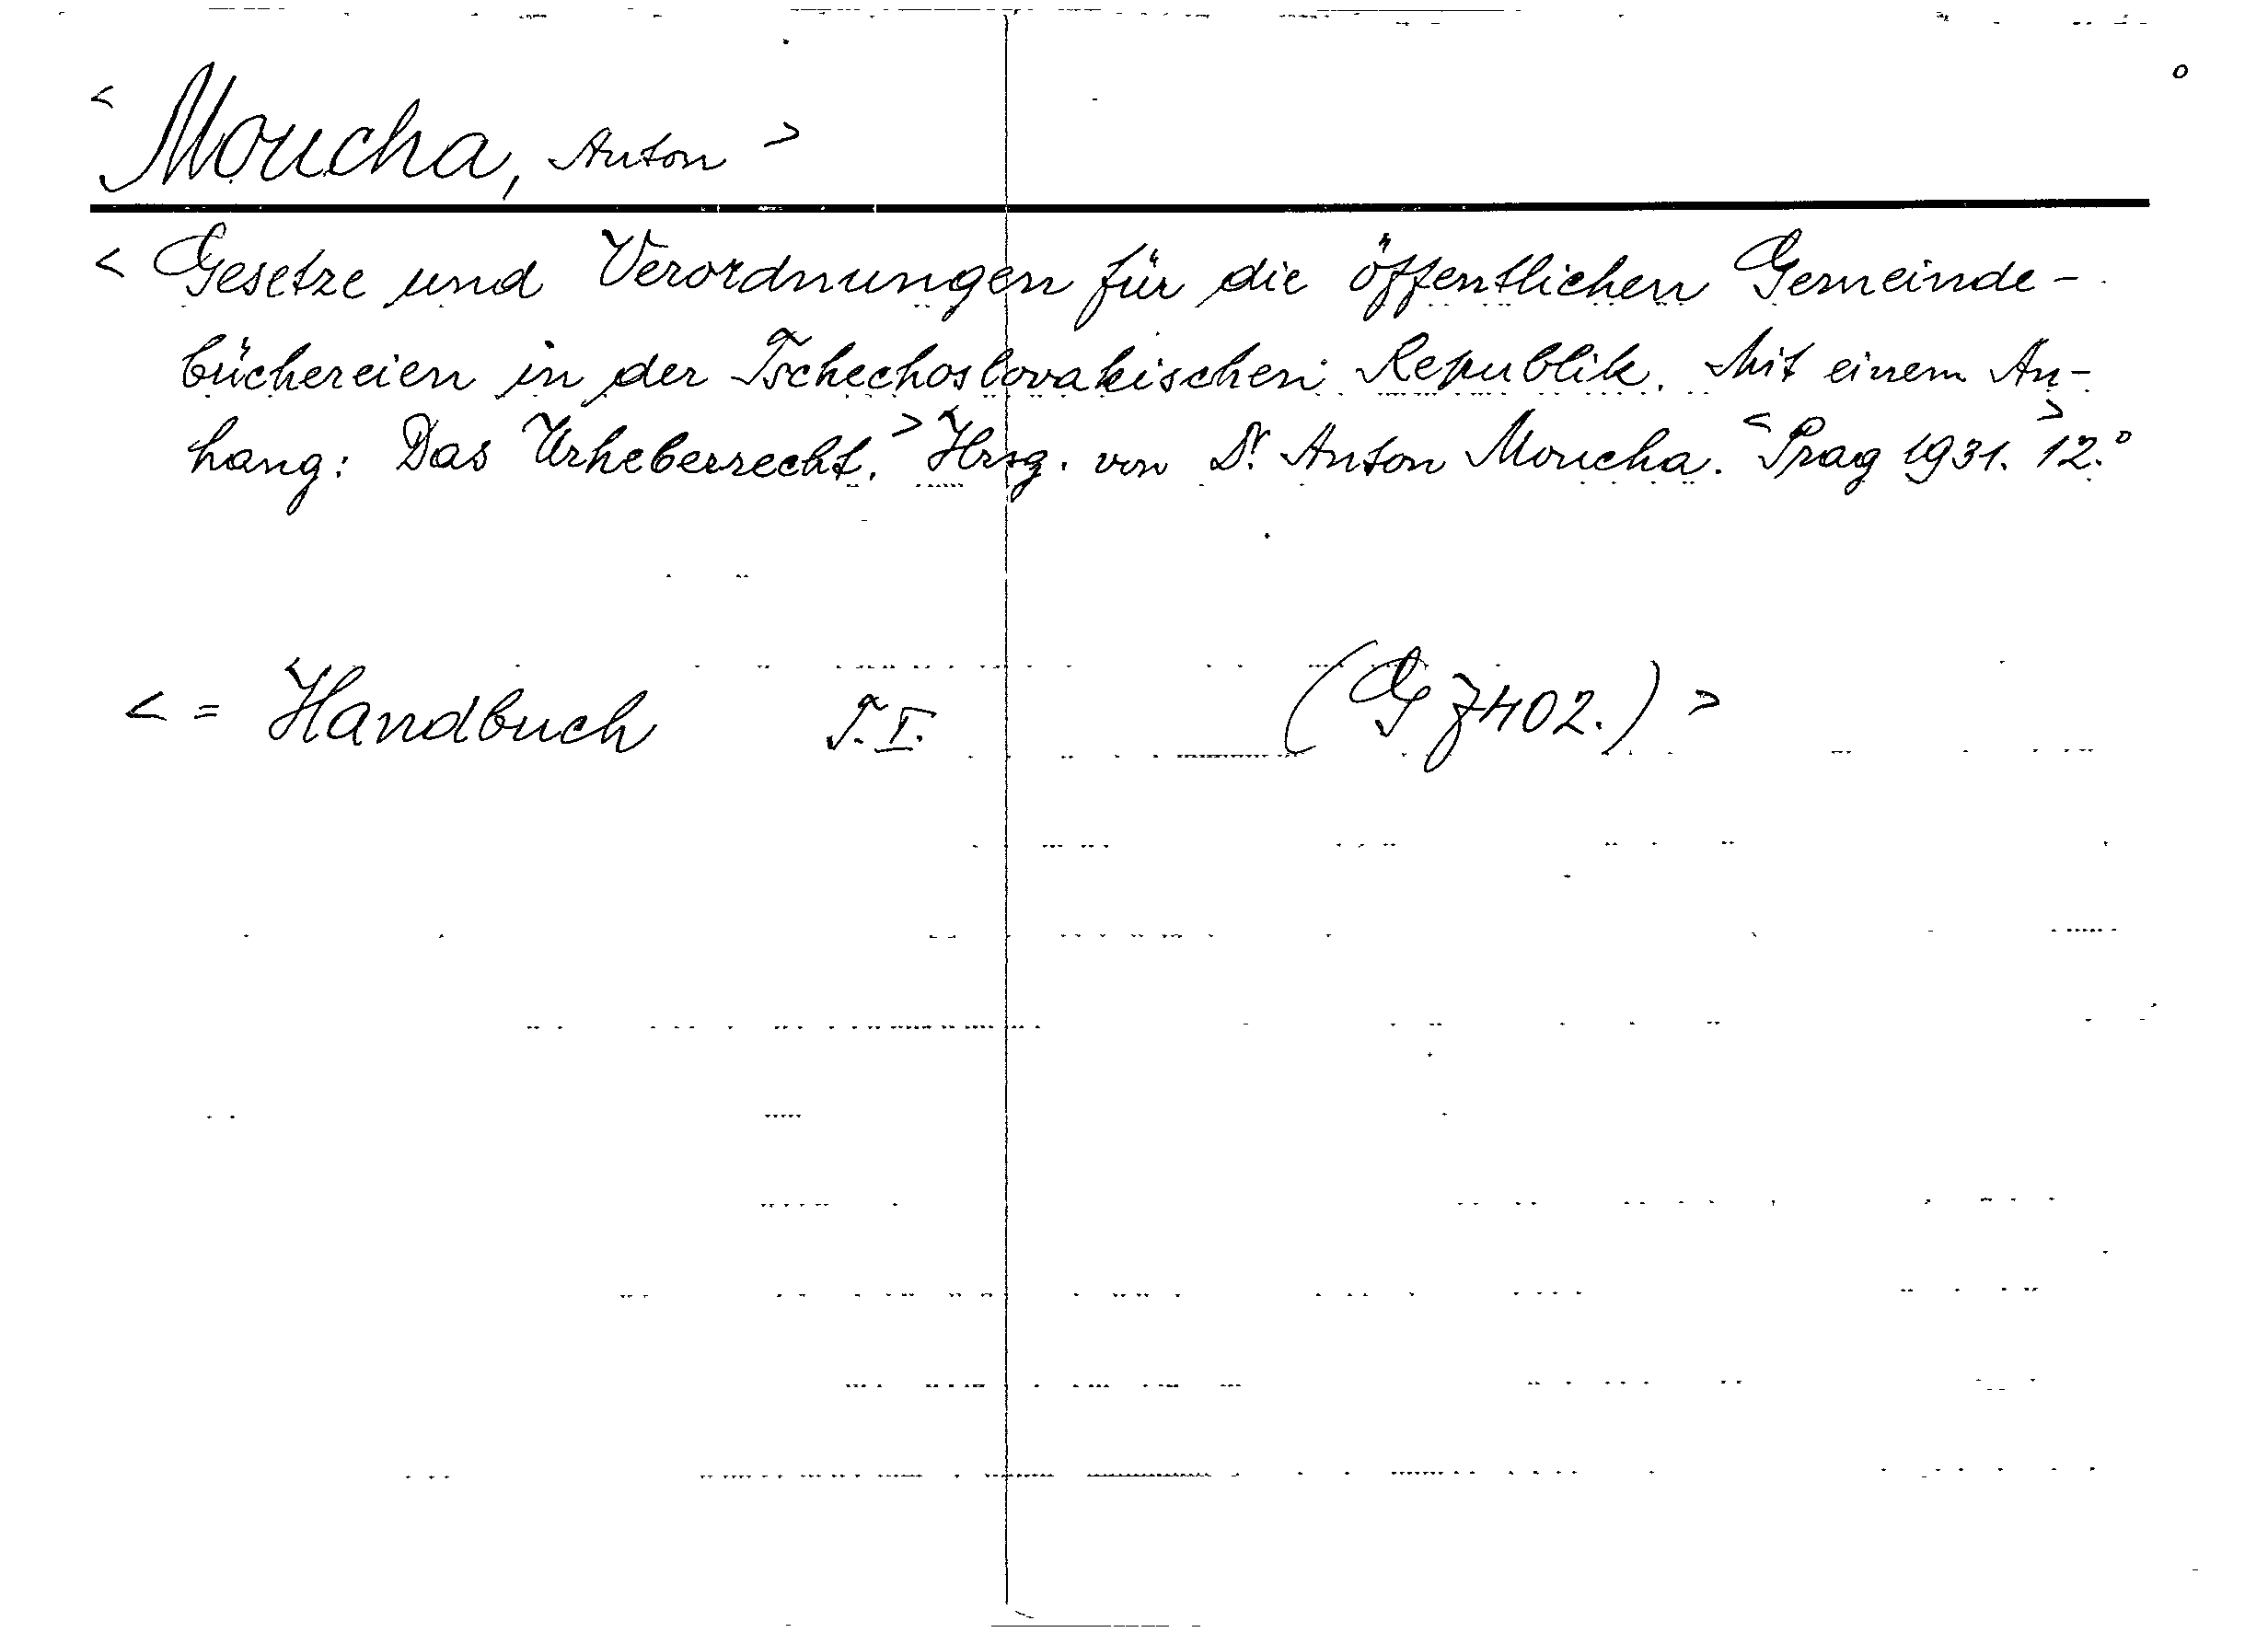 < Moucha, Anton >
< Gesetze und Verordnungen für die öffentlichen Gemeinde-
büchereien in der Tschechoslovakischen Republik. Mit einem An-
hang: Das Urheberrecht. > Hrsg. von Dr. Anton Moucha. < Prag 1931. > 12.°
< = Handbuch T. I. (G Z 402.) >